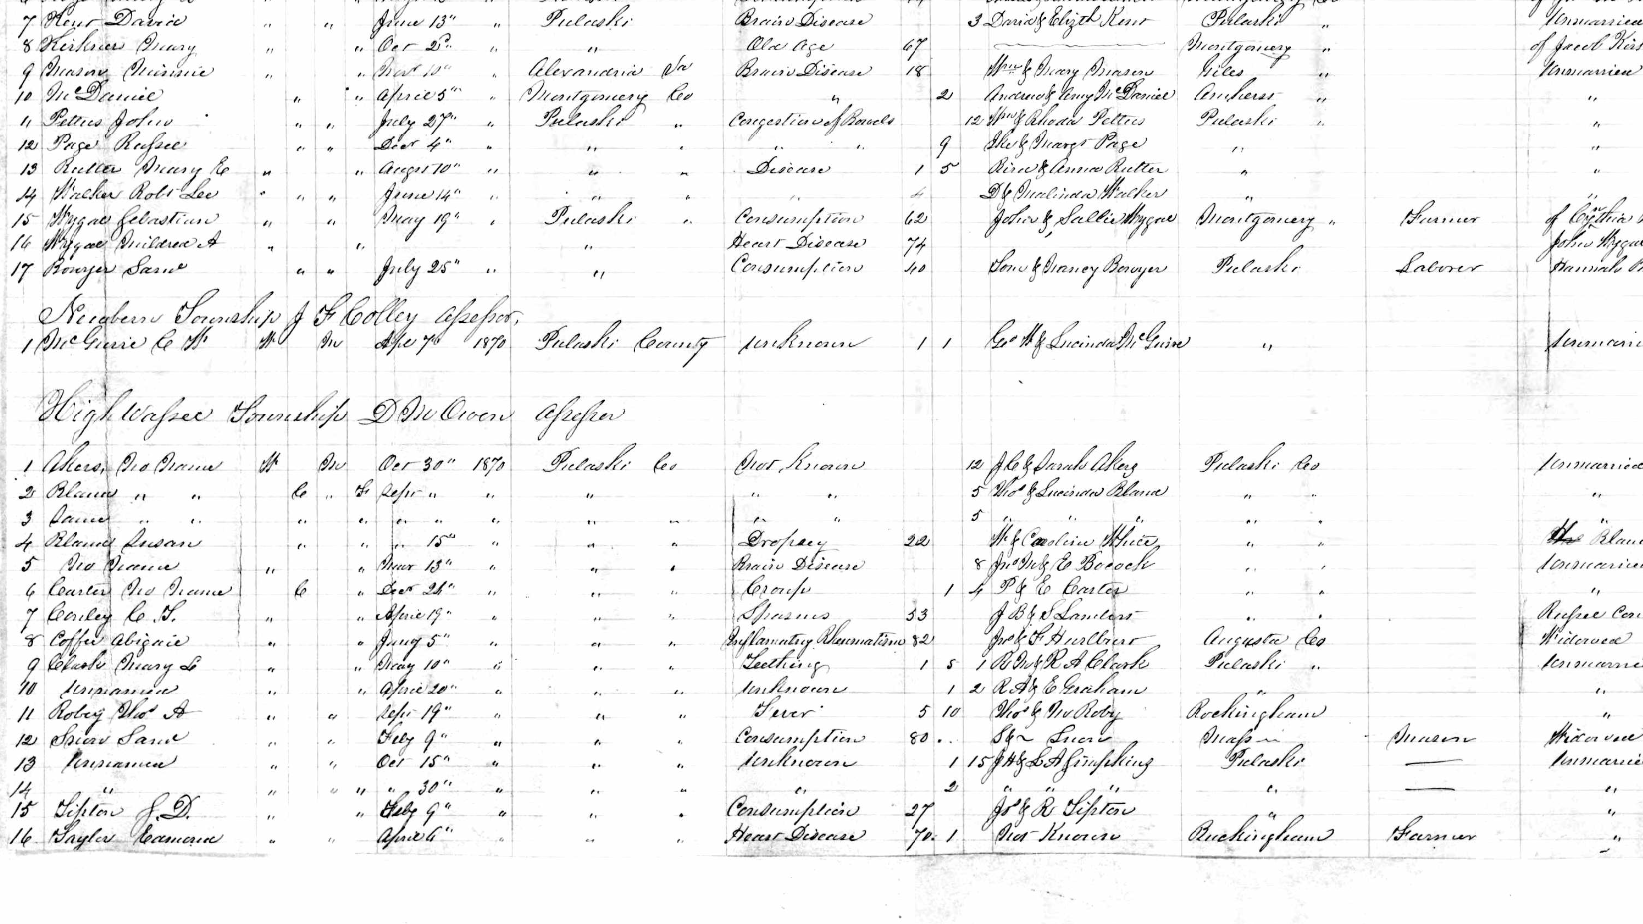 7 Kent David " " June 13" " Pulaski Brain Disease 3 David & Elizth Kent Pulaski " Unmarried
8 Kirkner Mary " " Oct 25" " " Old Age 67 Montgomery " of Jacob
9 Mason Minnie " " Nov 10" " Alexandria Va Brain Disease 18 Wm & Mary Mason Giles " Unmarried
10 McDaniel " " April 5" " Montgomery Co " 2 Andrew & Amy McDaniel Amherst " "
11 Pettus John " " July 27" " Pulaski " Congestion of Bowels 12 Wm & Rhoda Pettus Pulaski " "
12 Page " " Decr 4" " " " " " 9 & Margt Page " "
13 Rutter Mary E " " Augst 10" " " " Disease 1 5 & Anna Rutter " "
14 Walker Robt Lee " " " June 14" " " " " 4 D & Malinda Walker " "
15 Wygal Sebastian " " " May 19" " Pulaski " Consumption 62 John & Sallie Wygal Montgomery " Farmer of Cynthia
16 Wygal Mildred A " " " Heart Disease 74 John Wygal
17 Bowyer Saml " " July 25" " " Consumption 40 Tom & Nancy Bowyer Pulaski Laborer Hannah
Newbern Township J F Colley Assessor,
1 McGuire C W W M 7" 1870 Pulaski County Unknown 1 1 Geo W & Lucinda McGuire " Unmarri
High Wassee Township D M Owen Assessor
1 Akers, No Name W M Oct 30" 1870 Pulaski Co Not Known 12 J C & Sarah Akers Pulaski Co Unmarried
2 Bland " " C " F Sept " " " " " 5 Thos & Lucinda Bland " " "
3 Same " " " " " " " " " " " " 5 " " " " " "
4 Bland Susan " " " " 15" " " " Dropsy 22 W & Caroline White " " Blan
5 No Name " " Mar 13" " " " Brain Disease 8 Jno M & E Bocock " " Unmarried
6 Carter No Name C " Decr 24" " " " Croup 1 4 P & E Carter " " "
7 Conley C. T. " " April 19" " " " Spasms 53 J B & S Landers " " Con
8 Coffer Abigail " " Jany 5" " " " Inflamatory Rheumatism 82 Jno & F Augusta Co Widowed
9 Clark Mary L " " May 10" " " " Teething 1 5 1 R M & R A Clark Pulaski " Unmarrie
10 Unnamed " " April 20" " " " Unknown 1 2 R A & E Graham " "
11 Roby Thos A " " Sept 19" " " " Fever 5 10 Thos & M Roby Rockingham "
12 Snow Saml " " Feby 9" " " " Consumption 80 S & ~ Snow Mass Mason Widowed
13 Unnamed " " " Oct 15" " " " Unknown 1 15 J H & L A Simpkins Pulaski Unmarried
14 " " " " " 30" " " " " 2 " " " " "
15 Tipton J. D. " " Feby 9" " " " Consumption 27 Jos & R Tipton " "
16 Taylor " " April 6" " " " Heart Disease 70 1 Not Known Buckingham Farmer "